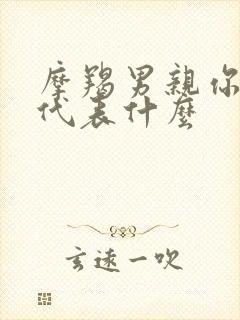 摩羯男親你
代表什麼
玄遠一吹